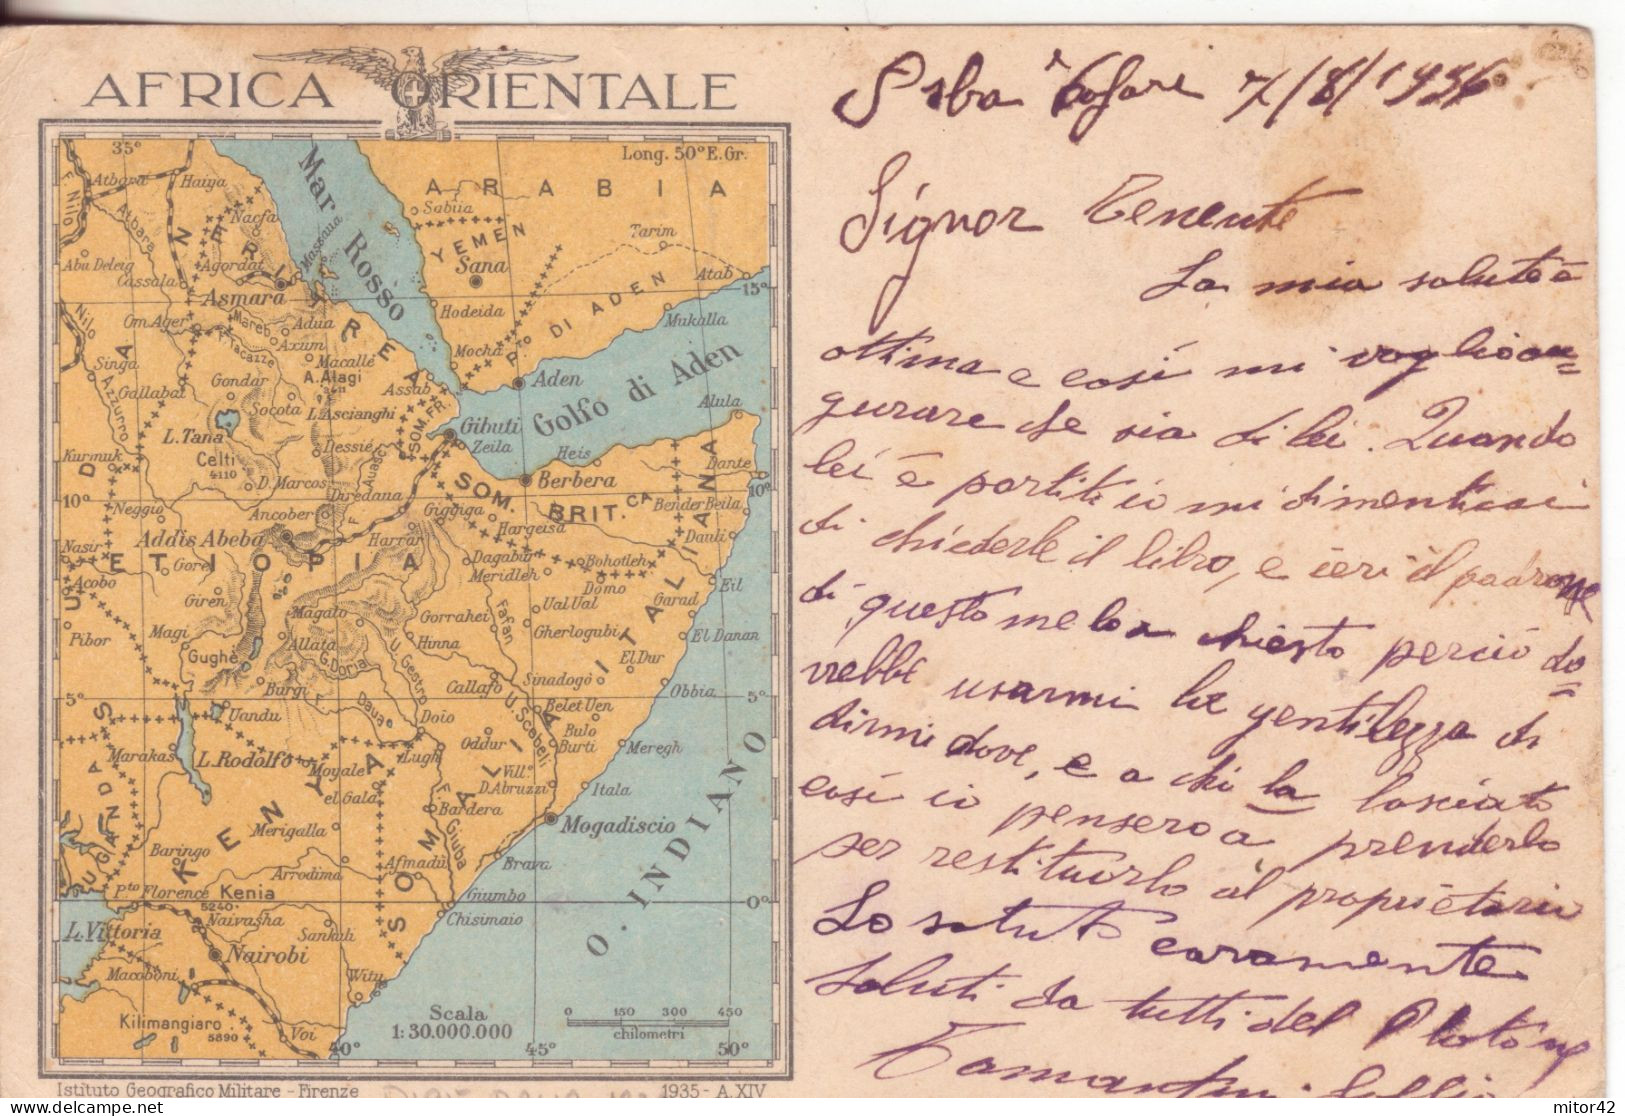 AFRICA ORIENTALE
35° Long. 50° E. Gr.
F. Nilo
Atbara
Haiya
Atbara
Mar Rosso
ARABIA
ERITREA
Nacfa
Massaua
Sabüa
YEMEN
Tarim
Abu Deleig
Cassala
Agordat
Sana
Atab
Asmara
15°
P.to DI ADEN
Hodeida
Mukalla
Nilo
Om Ager
Mareb
Adua
Axum
T. Tacazze
Macallè
Mocha
Singa
A. Alagi
Gallabat
Gondar
Assab
Aden
Golfo di Aden
Azzurro
Socota
L. Ascianghi
SOM. FR.
Alula
L. Tana
Gibuti
Zeila
Dessié
Kurmuk
Celti
4110
Auasc
Heis
Dante
D. Marcos
Berbera
10°
Diredaua
SOM. BRIT.CA
Neggio
Ancober
Giggiga
Bender Beila
Hargeisa
Addis Abeba
Harrar
Dauli
Nasir
ETIOPIA
Dagabur
Bohotleh
Acobo
Gore
Meridleh
Domo
Eil
Giren
Ual Ual
Garad
Magalo
Gorrahei
Fafan
Pibor
Magi
Allata
Hinna
Gherlogubi
El Danan
Gughè
G. Doria
U. Gestro
El Dur
Burgi
Callafo
Sinadogò
Obbia
5°
Uandu
Daua
Doio
U. Scebeli
Belet Uen
SOMALIA ITALIANA
Marakas
L. Rodolfo
Lugh
Oddur
Bulo Burti
Meregh
Moyale
Vill.o D. Abruzzi
el Gala
Itala
UGANDA
KENYA
Bardera
Merigalla
F. Giuba
Mogadiscio
O. INDIANO
Baringo
Afmadù
Arrodima
Brava
P.to Florence
Kenia
5240
Giumbo
0°
Chisimaio
Naivasha
L. Vittoria
Sankuli
Nairobi
Macoboni
Witu
Kilimangiaro
5890
Voi
Scala
1:30.000.000
0 150 300 450
chilometri
40° 45° 50°
Istituto Geografico Militare - Firenze 1935 - A. XIV
7/8/1936
Signor Tenente
La mia salute è
ottima e così mi voglio au=
gurare che sia di lei. Quando
lei è partito io mi dimenticai
di chiederle il libro, e ieri il padrone
di questo me lo a chiesto perciò do=
vrebbe usarmi la gentilezza di
dirmi dove, e a chi la lasciato
così io penserò a prenderlo
per restituirlo al proprietario
Lo saluto caramente
saluti da tutti del Plotone
mitor42